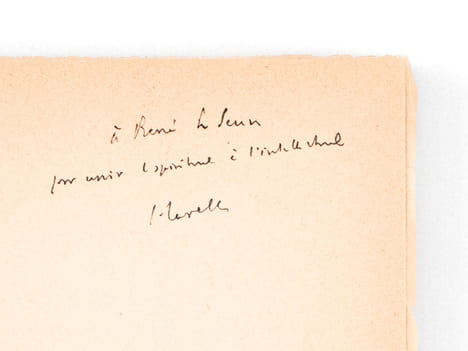 à René Le Senne
pour unir le spirituel à l'intellectuel
L. Lavelle